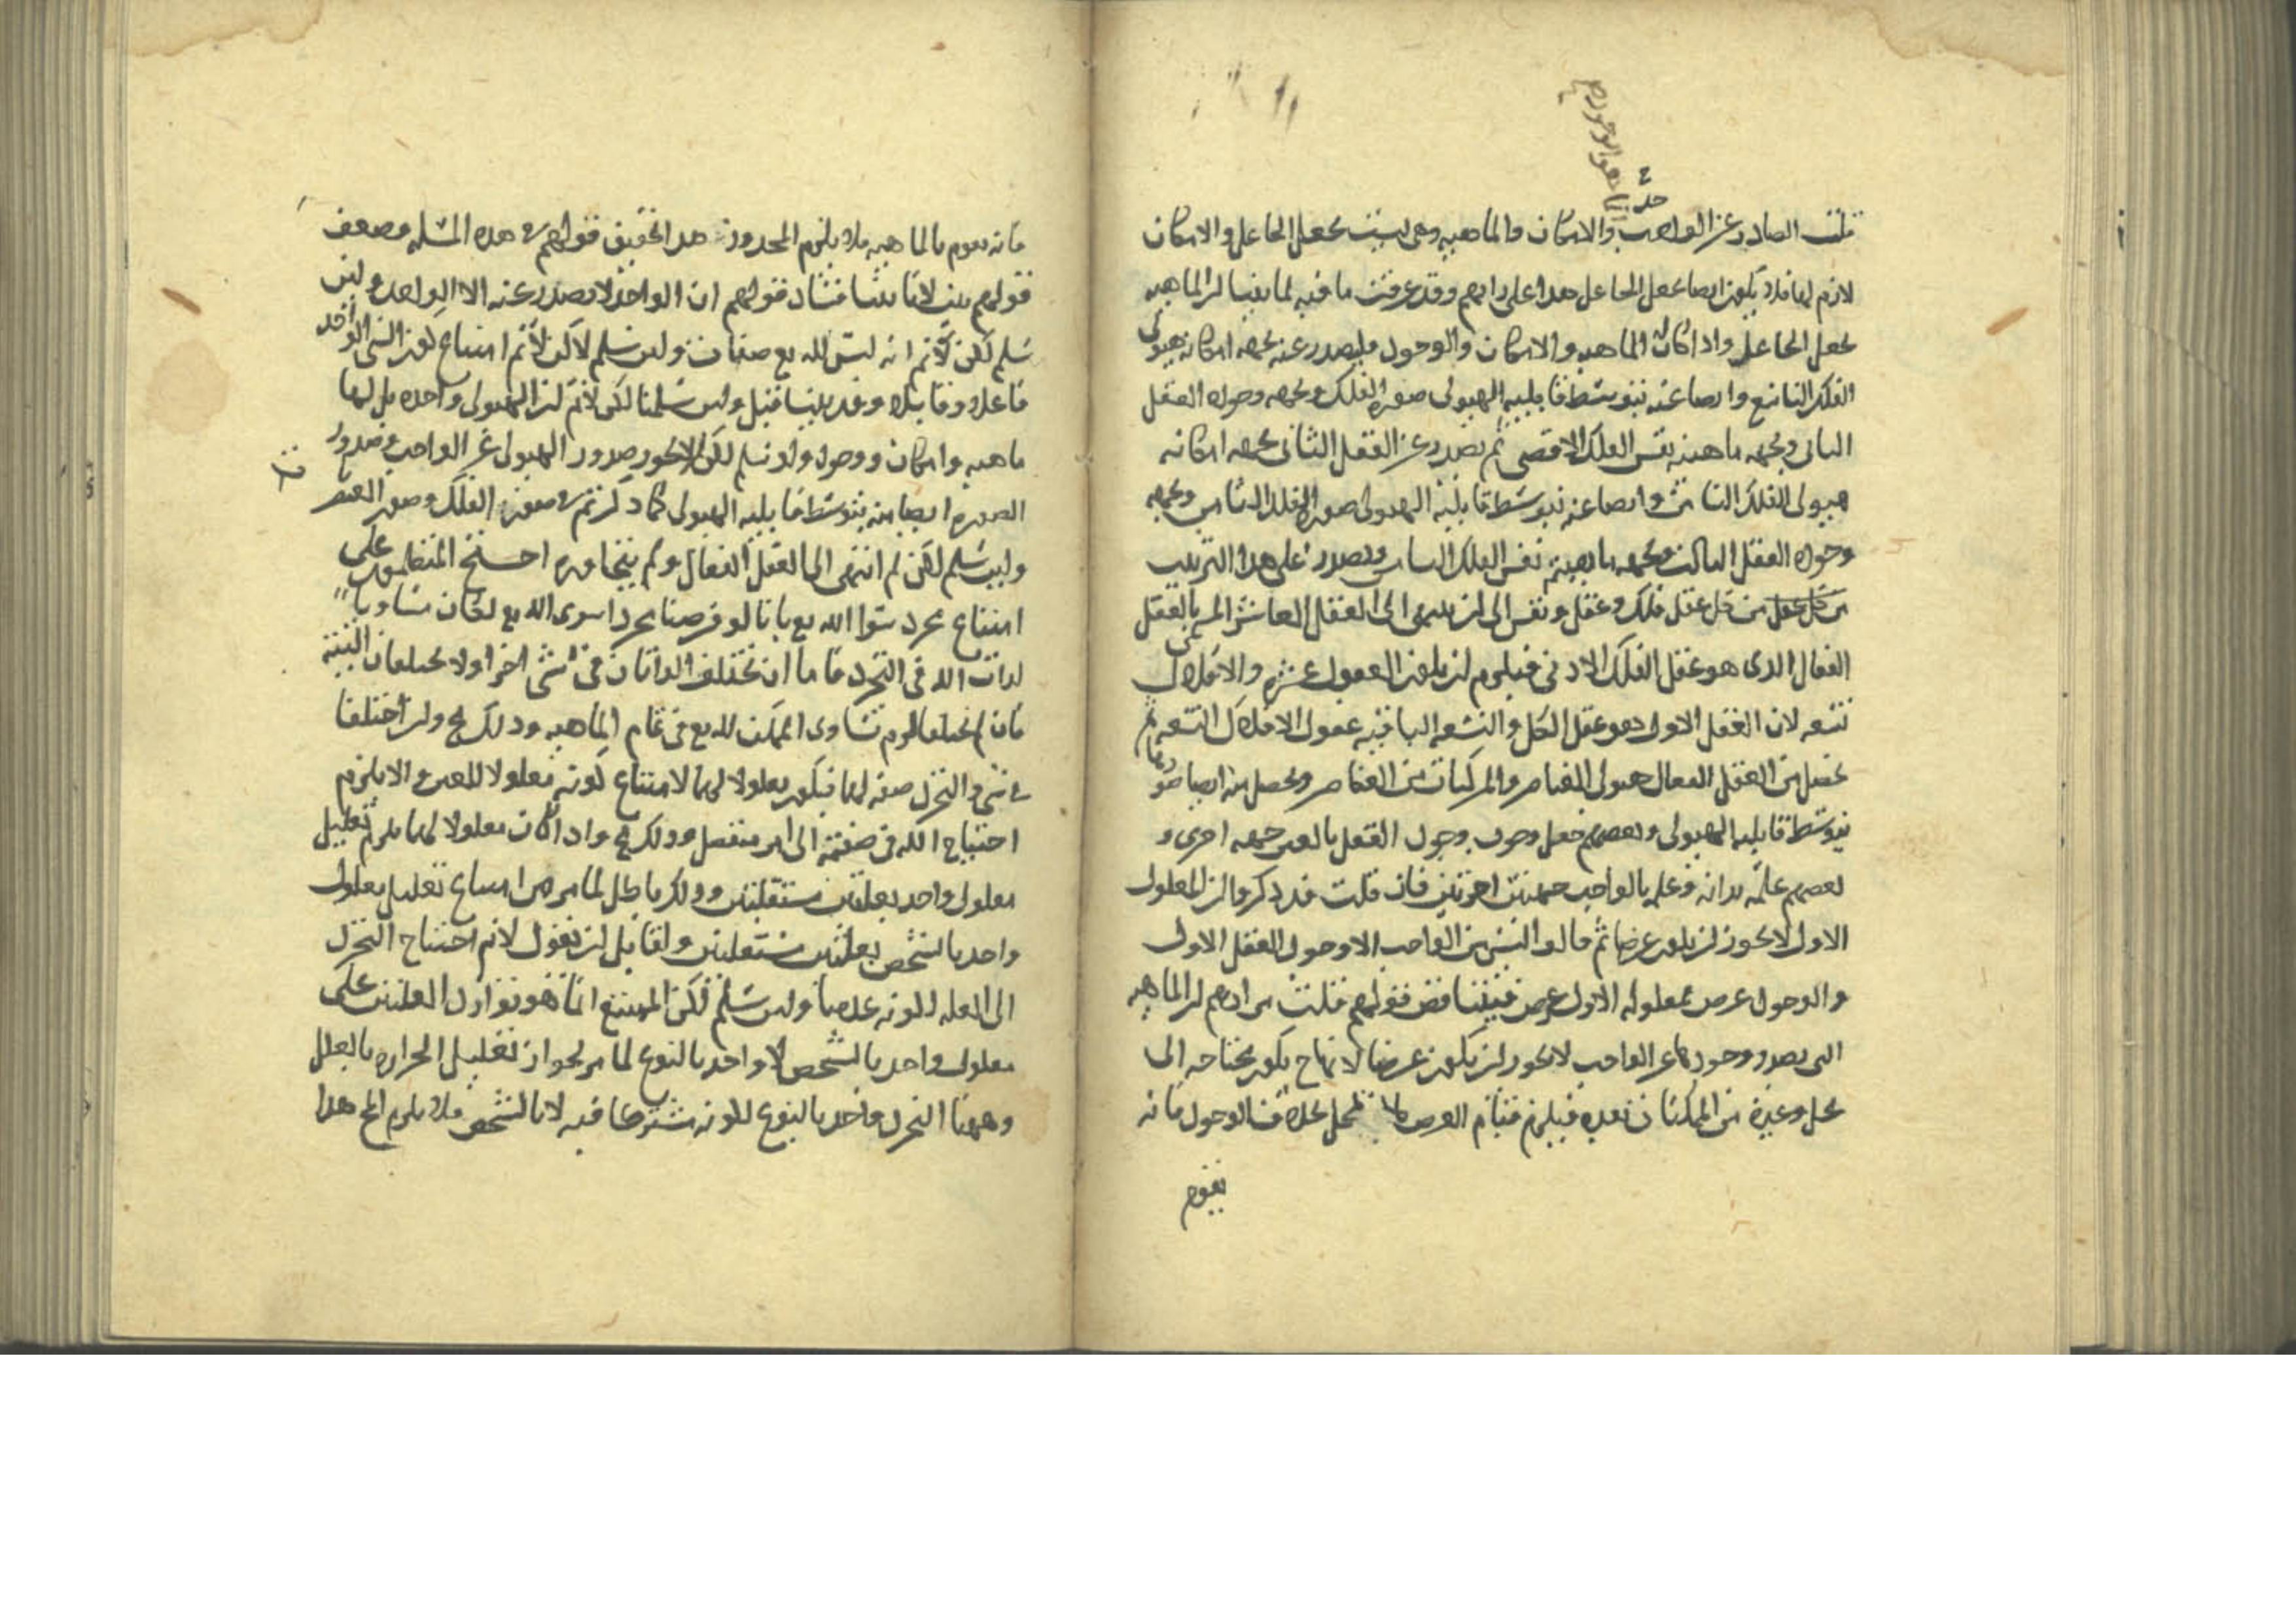 قلت الصادر عن الواجب والامكان والماهيه وهى ليست بجعل الجاعل والامكان
لازم لها فلا يكون ايضا بجعل الجاعل هذا على رايهم وقد عرفت ما فيه لما بينا ان الماهيه
بجعل الجاعل واذا كان الماهيه والامكان والوجود فليصدر عنه بجهه امكانه هيولى
الفلك التاسع وايضا عنه بتوسط قابليه الهيولى صوره الفلك وبجهه وجوده العقل
الثانى وبجهه ماهيته نفس الفلك الاقصى ثم يصدر عن العقل الثانى بجهه امكانه
هيولى الفلك الثامن وايضا عنه بتوسط قابليه الهيولى صوره الفلك الثامن وبجهه
وجوده العقل الثالث وبجهه ماهيته نفس الفلك الثامن ويصدر على هذا الترتيب
من كل عقل فلك وعقل ونفس الى ان ينتهى الى العقل العاشر المسمى بالعقل
الفعال الذى هو عقل الفلك الادنى فيلزم ان يكون العقول عشره والافلاك
تسعه لان العقل الاول هو عقل الكل والتسعه الباقيه عقول الافلاك التسعه ثم
يحصل من العقل الفعال هيولى العناصر والمركبات من العناصر ويحصل منه ايضا صورها
بتوسط قابليه الهيولى وبعضهم جعل وجوب وجود العقل بالغير جهه اخرى و
بعضهم علمه بذاته وعلمه بالواجب جهتين اخرتين فان قلت قد ذكروا ان المعلول
الاول لا يجوز ان يكون عرضا ثم قالوا ليس من الواجب الا وجود العقل الاول
والوجود عرض فمعلوله الاول عرض فيتناقض قولهم قلت مرادهم ان الماهيه
التى يصدر وجودها عن الواجب لا يجوز ان يكون عرضا لانها ح يكون محتاجه الى
محل وغيره من الممكنات بعده فيلزم قيام العرض لا بمحل بخلاف الوجود فانه
يقوم
فانه يقوم بالماهيه فلا يلزم المحذور هذا تحقيق قولهم فى هذه المسله وضعف
قولهم بين لانا بينا فساد قولهم ان الواحد لا يصدر عنه الا الواحد ولئن
سلم لكن لانم انه ليس لله تع صفات ولئن سلم لكن لانم امتناع كون الشى الواحد
فاعلا وقابلا وقد بينا قبل ولئن سلمنا لكن لانم ان الهيولى واحده بل لها
ماهيه وامكان ووجود ولو نسلم لكن لا يجوز صدور الهيولى عن الواجب وصدور
الصوره ايضا منه بتوسط قابليه الهيولى كما ذكرتم فى صوره الفلك وصور العنصر
ولئن سلم لكن لم انتهى الى العقل الفعال ولم يتجاوزه احتج المتكلمون على
امتناع مجرد سوا الله تع بانا لو فرضنا مجردا سوى الله تع لكان مساويا
لذات الله فى التجرد فاما ان تختلف الذاتان فى شى اخر او لا يختلفان البته
فان لم يختلفا لزم تساوى الممكن لله تع فى تمام الماهيه وذلك مح وان اختلفا
فى شى والتجرد صفه لهما فيكون معلولا لهما لامتناع كونه معلولا للغير والا يلزم
احتياج الله فى صفته الى امر منفصل وذلك مح واذا كان معلولا لهما يلزم تعليل
معلول واحد بعلتين مستقلتين وذلك باطل لما مر من امتناع تعليل معلول
واحد بالشخص بعلتين مستقلتين ولقايل ان يقول لانم احتياج التجرد
الى العله لكونه عدميا ولئن سلم لكن الممتنع انما هو توارد العلتين على
معلول واحد بالشخص لا واحد بالنوع لما مر لجواز تعليل الحراره بالعلل
وههنا التجرد واحد بالنوع لكونه مشتركا فيه لا بالشخص فلا يلزم المح هذا